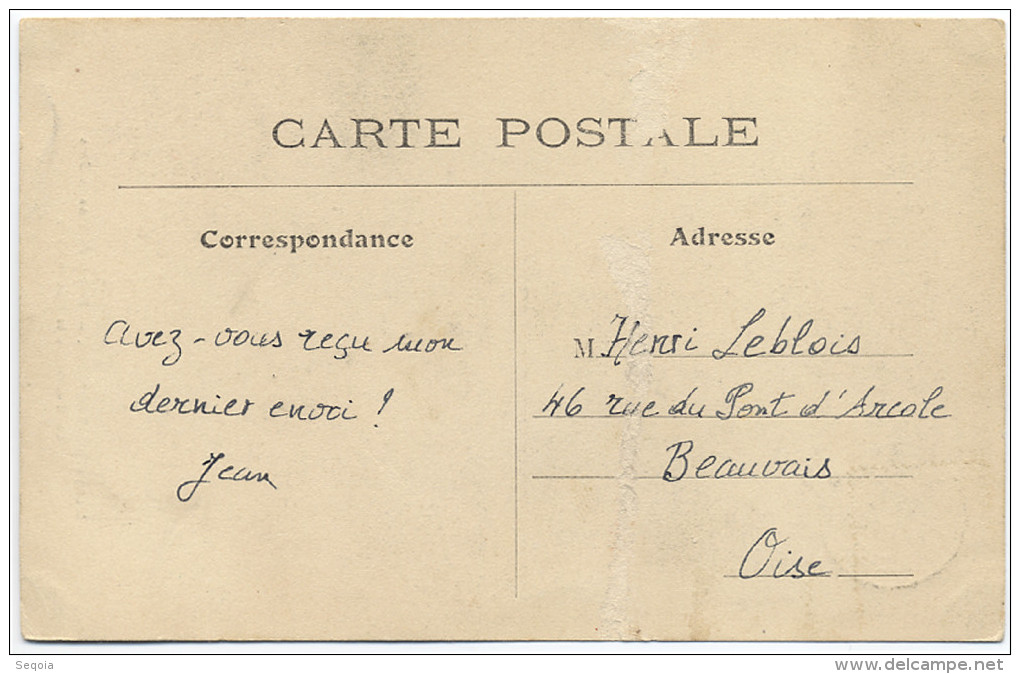 CARTE POSTALE
Correspondance
avez-vous reçu mon
dernier envoi !
Jean
Adresse
M. Henri Leblois
46 rue du Pont d'Arcole
Beauvais
Oise
Seqoia
www.delcampe.net